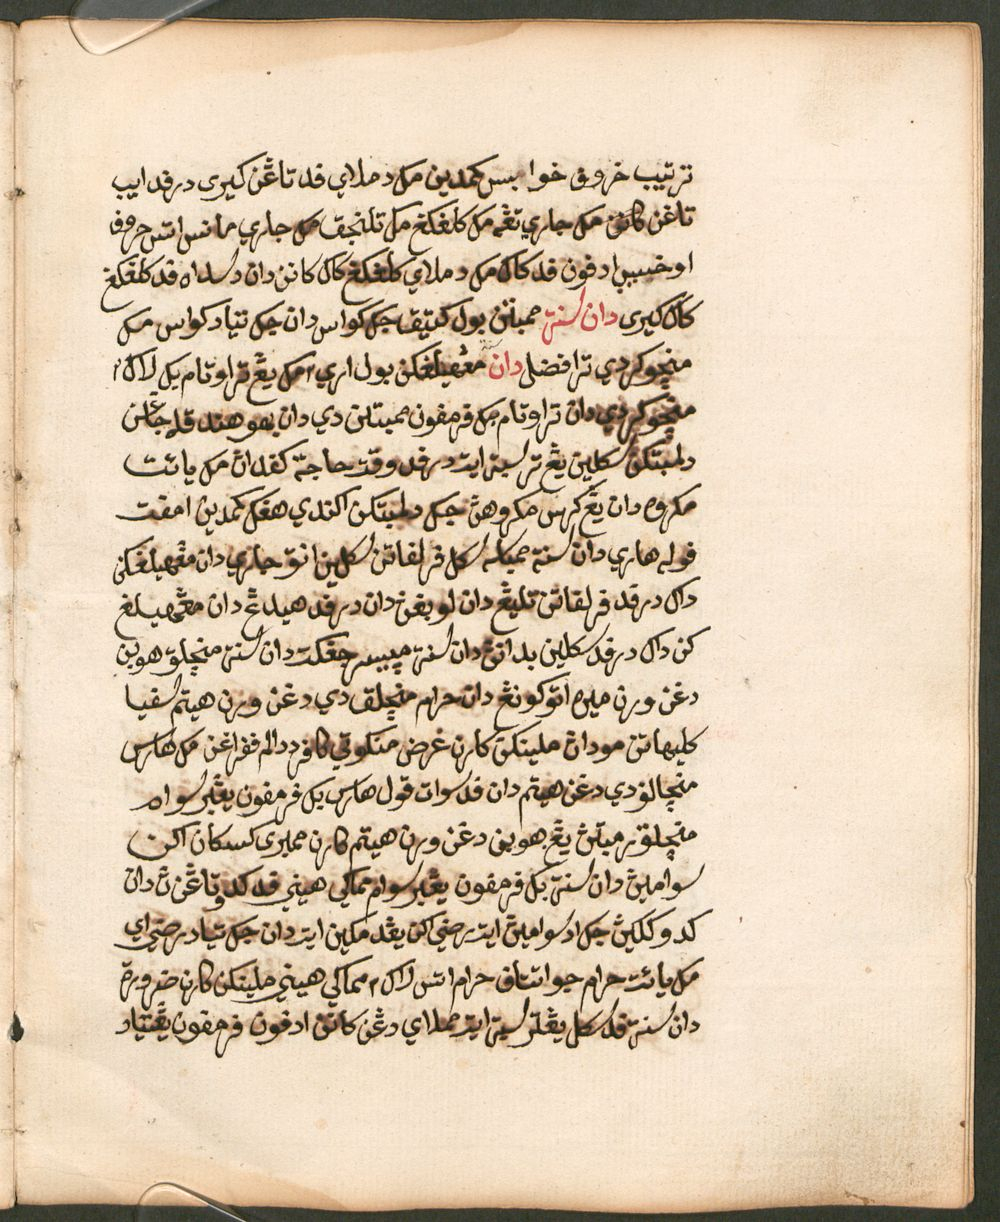 ترتيب خروف خوابس كمدين مك دملاي قد تاڠن كيري درقد ايب
تاڠن كانن مك جاري تڠه مك كلڠكڠ مك تلنجق مك جاري مانس اتس حروف
اوخسبس ادفون قد كاك مك دملاي كلڠكڠ كاك كانن دان دسداه قد كلڠكڠ
كاك كيري دان سنة ممبتن بول كتيق جك كواس دان جك تياد كواس مك
منچوكر دي ترافضل دان سنة مڠهيلڠكن بول اري٢ مك يڠ تراوتام يك لاك٢
منچوكر دي دان تراوتام بك فرمفون ممبتن دي دان بهو هندقله جاڠن
دلمبتكن سكلين يڠ ترسبة ايت درقد وقت حاجة كفدان مك يائت
مكروه دان يڠ كرس مكروهڽ جك دلمبتكن اكندي هڠك كمدين امفت
فوله هاري دان سنة ممباسه سكل فرلفاتن سكلين انق جاري دان مڠهيلڠكن
داك درقد فرلفاتن تليڠ دان لوبڠڽ دان درقد هيدڠ دان مڠهيلڠ
كن داك درقد سكلين بدانڽ دان سنة مپيسر جڠكت دان سنة منچلق هوبن
دڠن ورن ميره اتو كونڠ دان حرام منچلق دي دڠن ورن هيتم سفيا
كليهاتن مودان ملينكن كارن غرض مناكوتي كافر دالم ففراڠن مك هارس
منچالق دي دڠن هيتم دان قد سوات قول هارس بك فرمفون يڠبرسواه
منچلق رمبتڽ يڠ هوبن دڠن ورن هيتم كارن ممبري كسكان اكن
سوامين دان سنة بك فرمفون يڠبرسوام مماكي هيني قد كدو تاڠنڽ دان
كدو ككين جك اد سوامين ايت رضي اكن يڠدمكين ايت دان جك تياد رضي اي
مك يائت حرام جو انتاق حرام اتس لاك٢ مماكي هيني ملينكن كارن ضرورة
دان سنة قد سكل يڠترسبة ايت مملاي دڠن كانن ادفون فرمفون يڠتياد